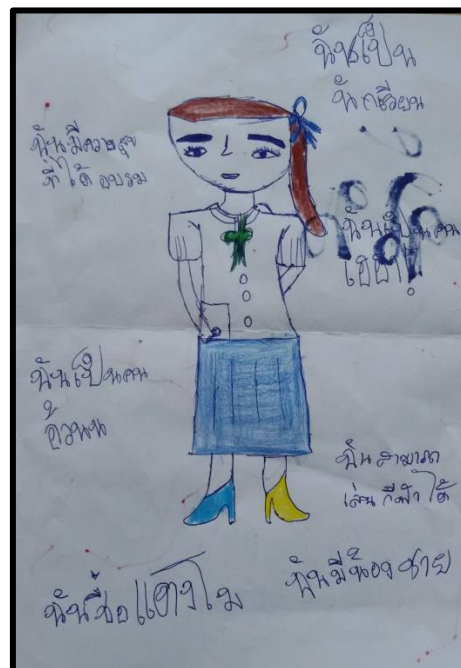 ฉันเป็น
นักเรียน
ฉันมีความสุข
ที่ได้อบรม
ฉันเป็นคน
ฉันเป็นคน
อ้วน
ฉันสามารถ
เล่นกีฬาได้
ฉันชื่อแตงโม
ฉันมีน้องชาย